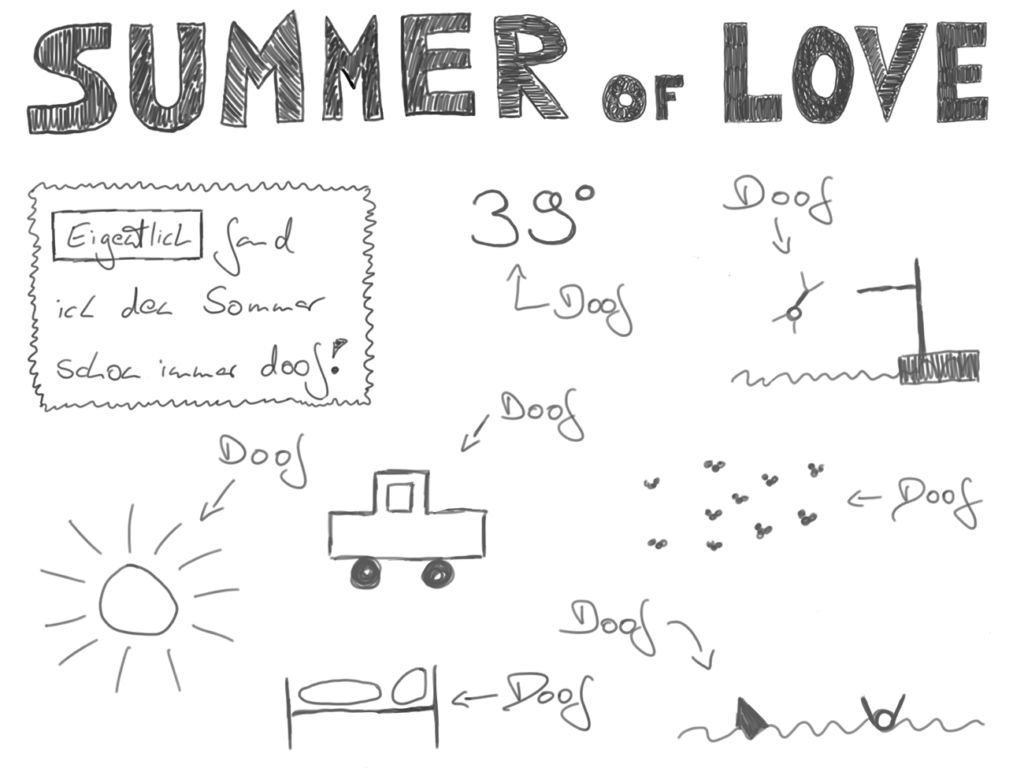 SUMMER OF LOVE
Eigentlich fand
ich den Sommer
schon immer doof!
39°
Doof
Doof
Doof
Doof
Doof
Doof
Doof